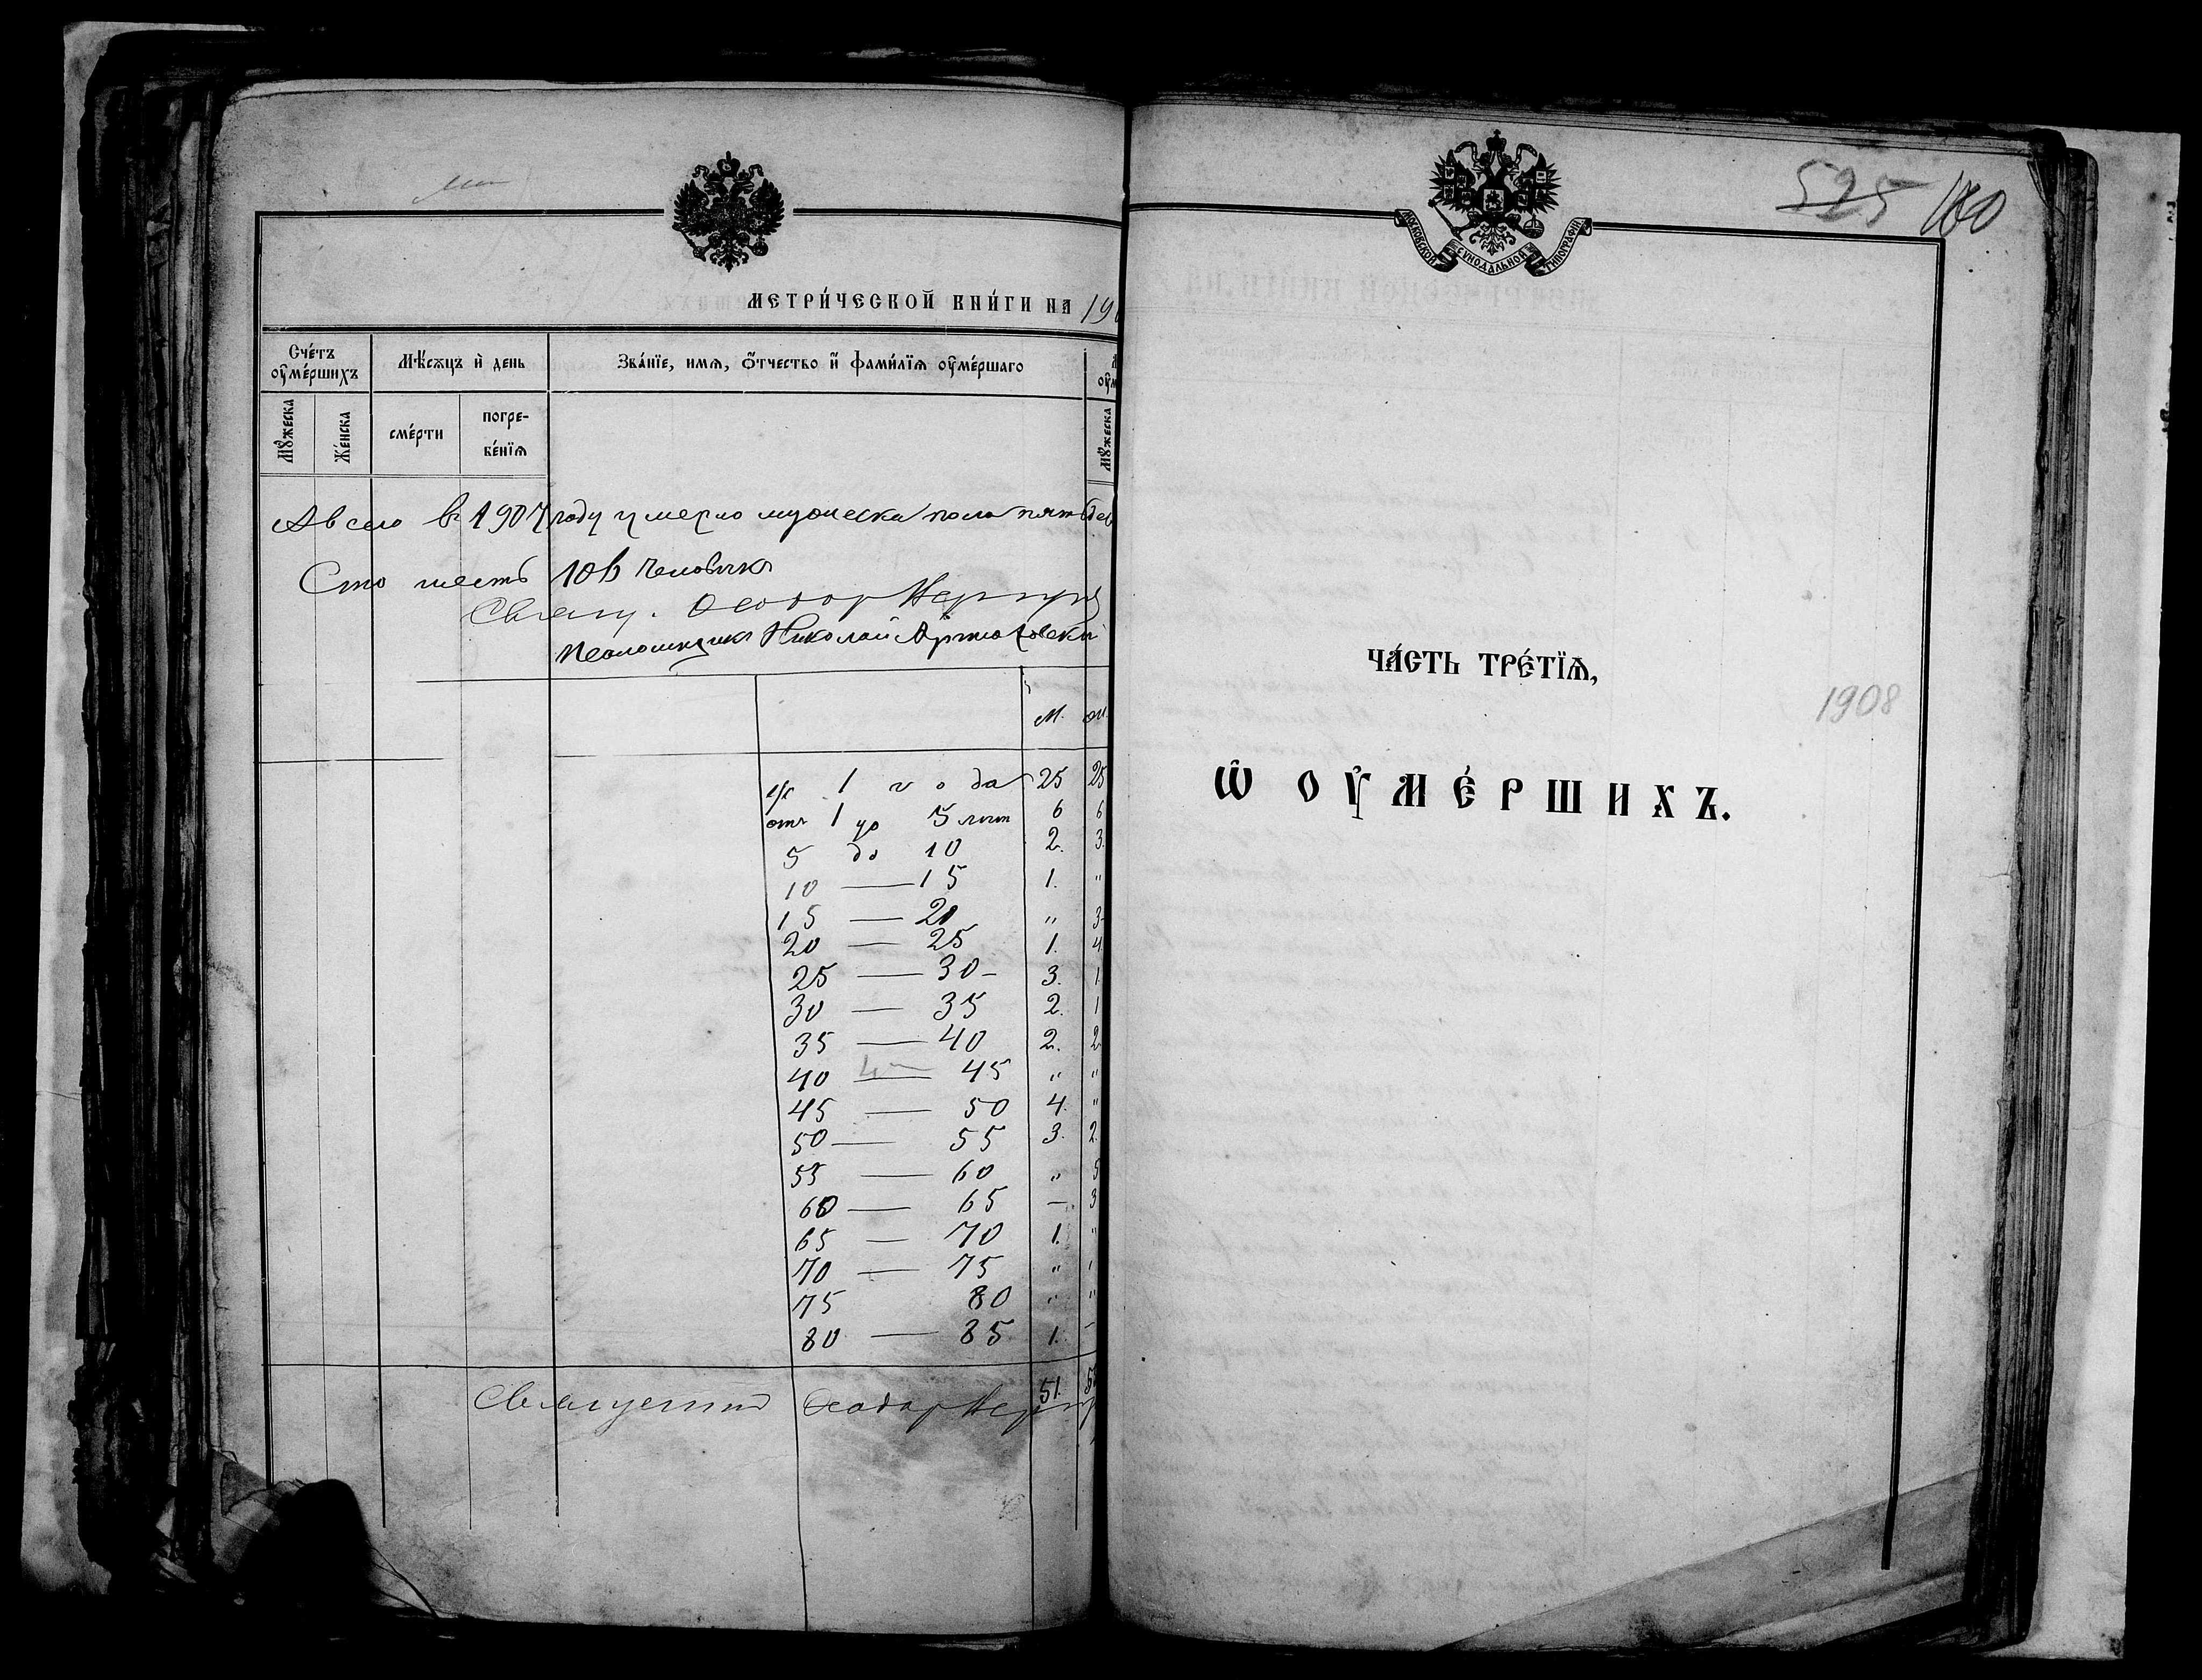 МЕТРИ́ЧЕСКОЙ КНИ́ГИ НА 190
Сче́тъ оу҆ме́ршихъ
Мѣ́сѧцъ и҆ де́нь
Зва́нїе, имѧ, ѻ҆́тчество и҆ фами́лїѧ оу҆ме́ршаго
Мꙋ́жеска
Же́нска
сме́рти
погре-
бе́нїѧ
Мꙋ́жеска
А всего въ 1907 году умерло мужеска пола пять
Сто шесть 106 человѣкъ
Священ. Ѳеодоръ
Псаломщикъ Николай
М. ж.
до 1 года 25 25
отъ 1 до 5 лѣтъ 6 6
5 до 10 2. 3.
10 — 15 1. "
15 — 20 " 3.
20 — 25 1. 4.
25 — 30 - 3. 1
30 — 35 2. 1
35 — 40 2. 2
40 — 45 " "
45 — 50 4. "
50 — 55 3. 2.
55 — 60 " 5
60 — 65 — 3
65 — 70 1. "
70 — 75 " "
75 80 " "
80 — 85 1. -
51.
Священникъ Ѳеодоръ
МОСКОВСКОЙ СѴНОДАЛЬНОЙ ТИПОГРАФІИ
525 100
ЧА́СТЬ ТРЕ́ТЇѦ,
1908
Ѡ҆ ОУ҆МЕ́РШИХЪ.